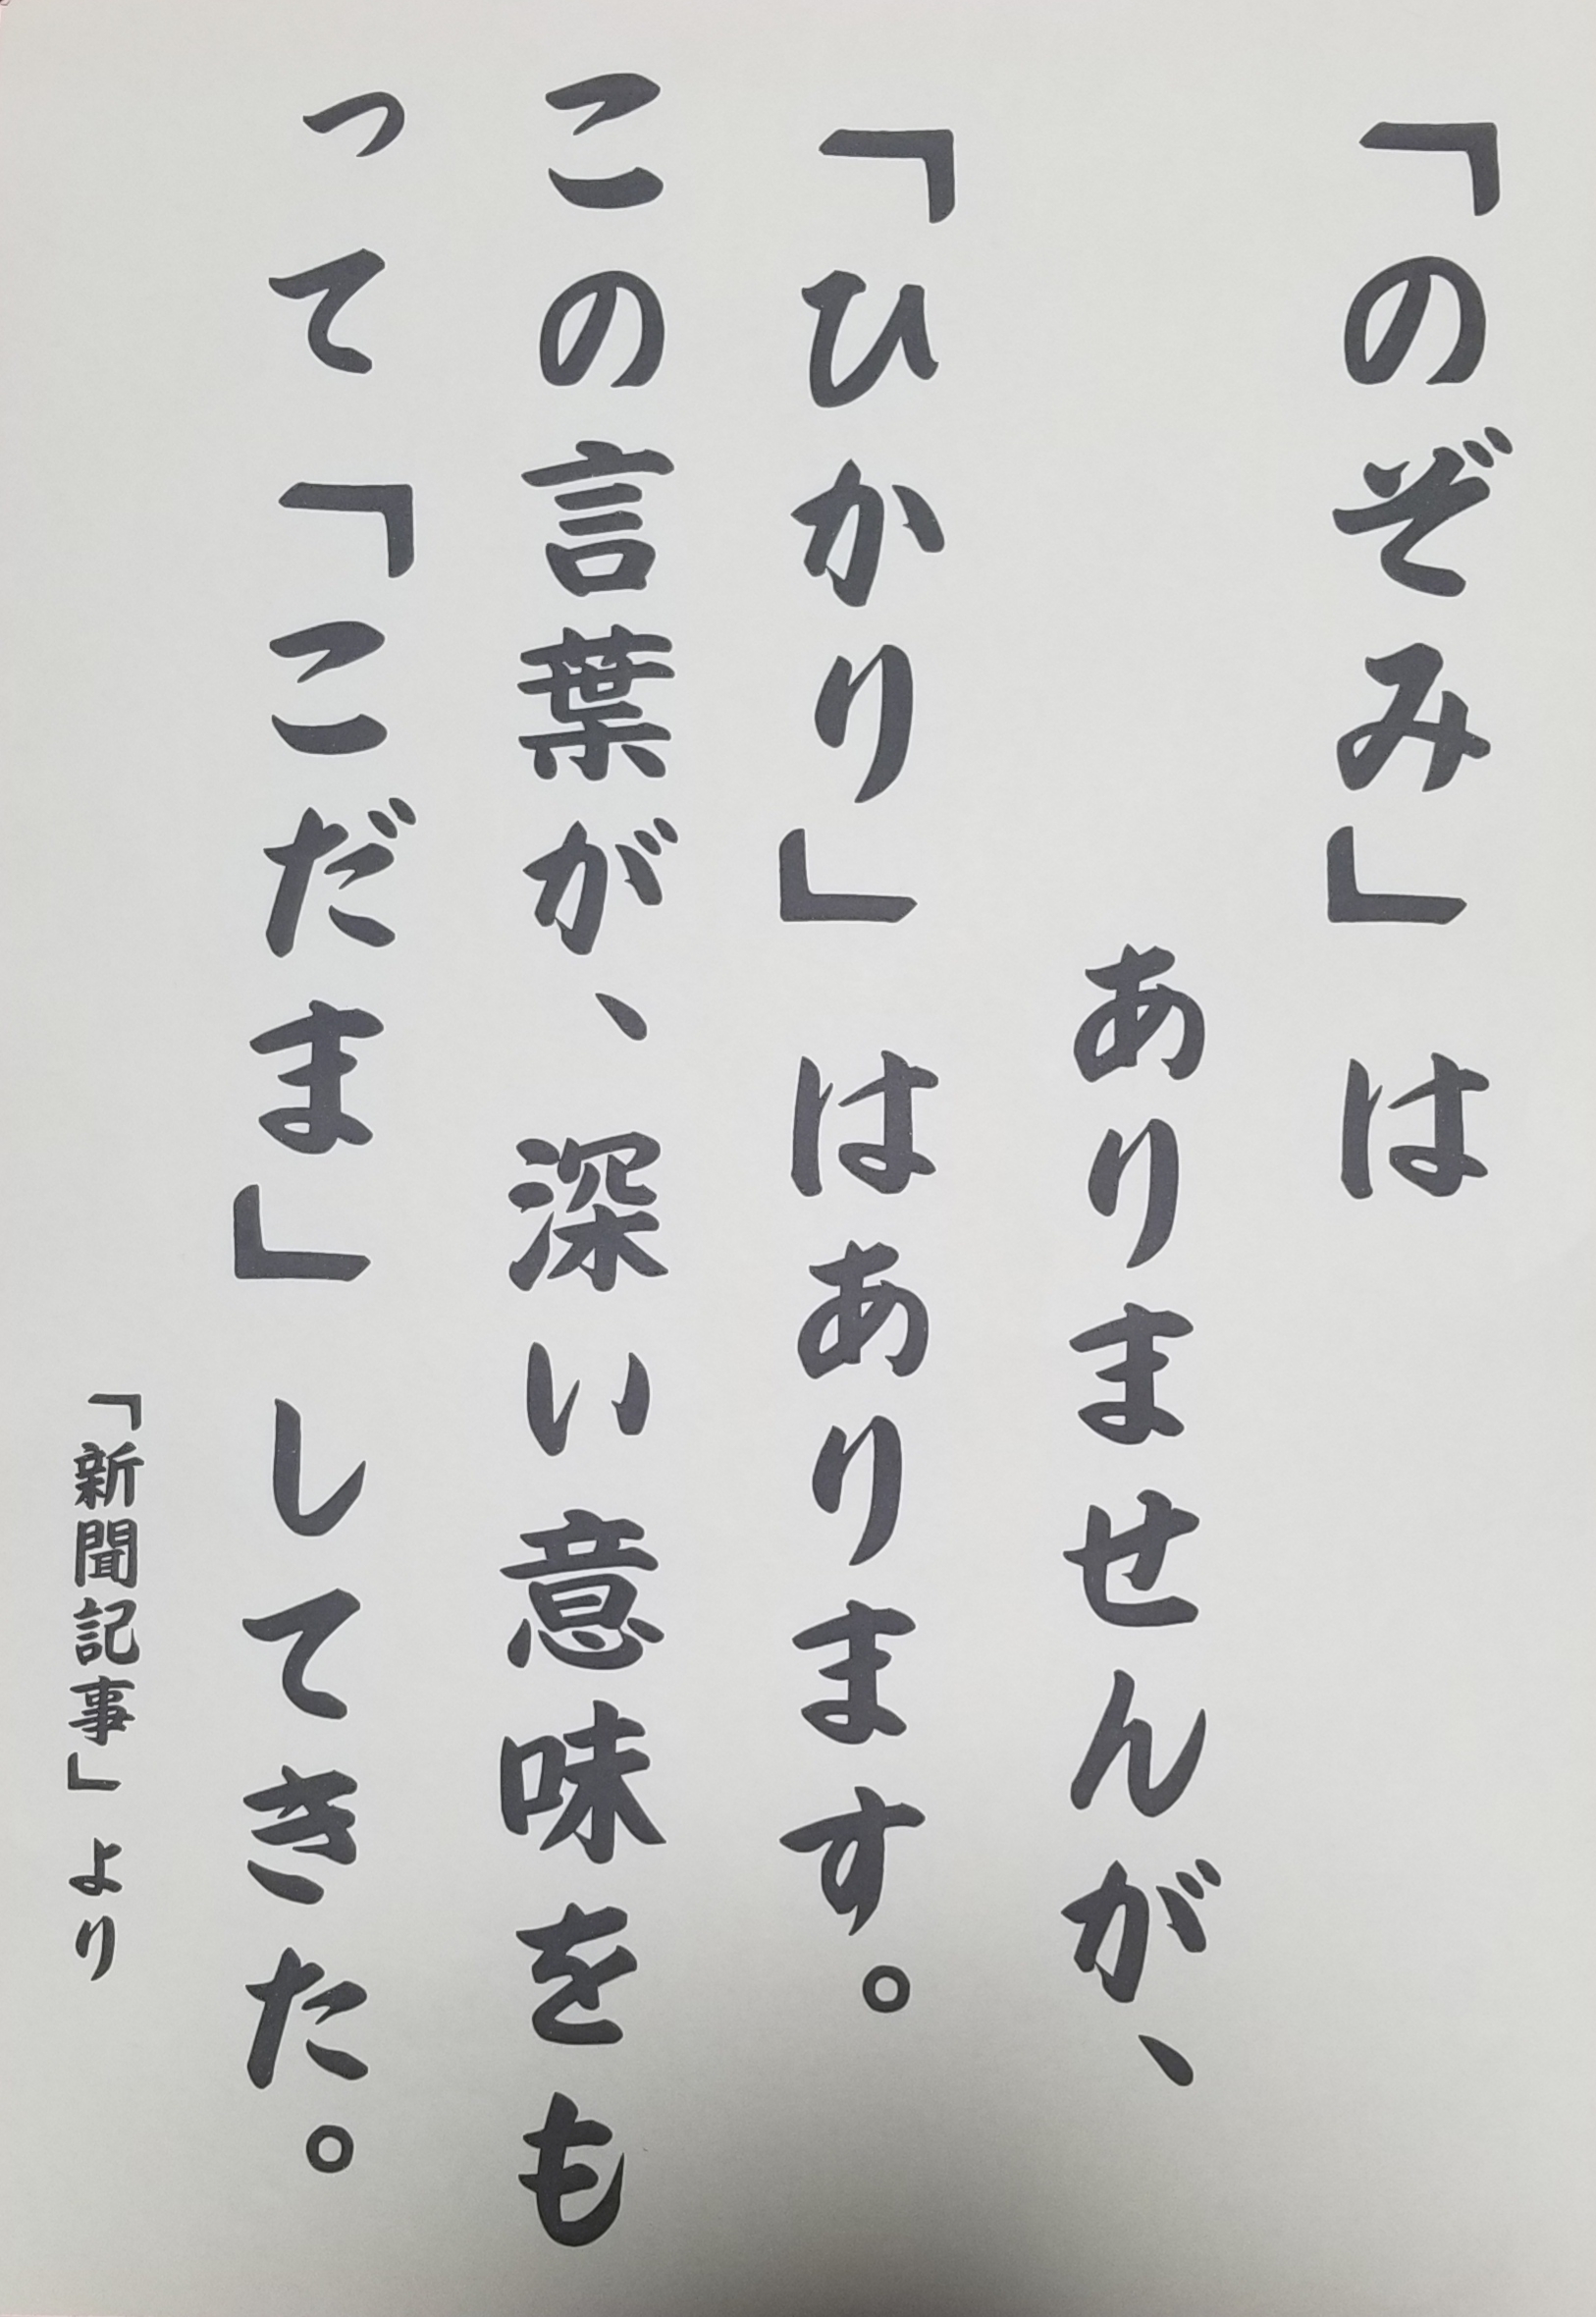 「のぞみ」は
ありませんが、
「ひかり」はあります。
この言葉が、深い意味をも
って「こだま」してきた。
「新聞記事」より